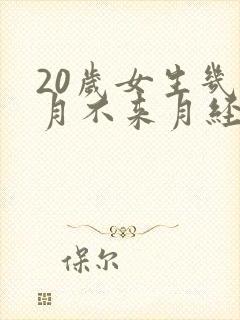 20歲女生幾
月不来月經
保尔